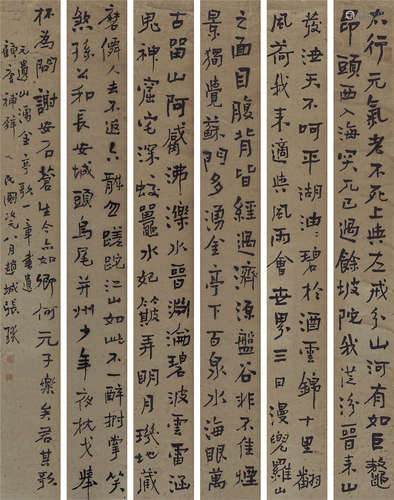 太行元氣老不死上與左戒分山河有如巨鼇
昂頭西入海突兀已過餘坡陀我從汾晉來山
發洩天不呵平湖油〻碧於酒雲錦十里翻
風荷我來適與風雨會世界三日漫兜羅山
之面目腹背皆經過濟源盤谷非不佳煙
景獨覺蘇門多湧金亭下百泉水海眼萬
古留山阿觱沸濼水晉淵淪碧波雲雷涵
鬼神窟宅深蛟鼉水妃簸弄明月璣地藏
磨僊人去不返六龍忽蹉跎江山如此不一醉拊掌笑
煞孫公和長安城頭烏尾并州少年夜枕戈舉
杯為問謝安石蒼生今亦如卿何元子樂矣君其歌
元遺山湧金亭歌
補錄 民國 八月趙城張